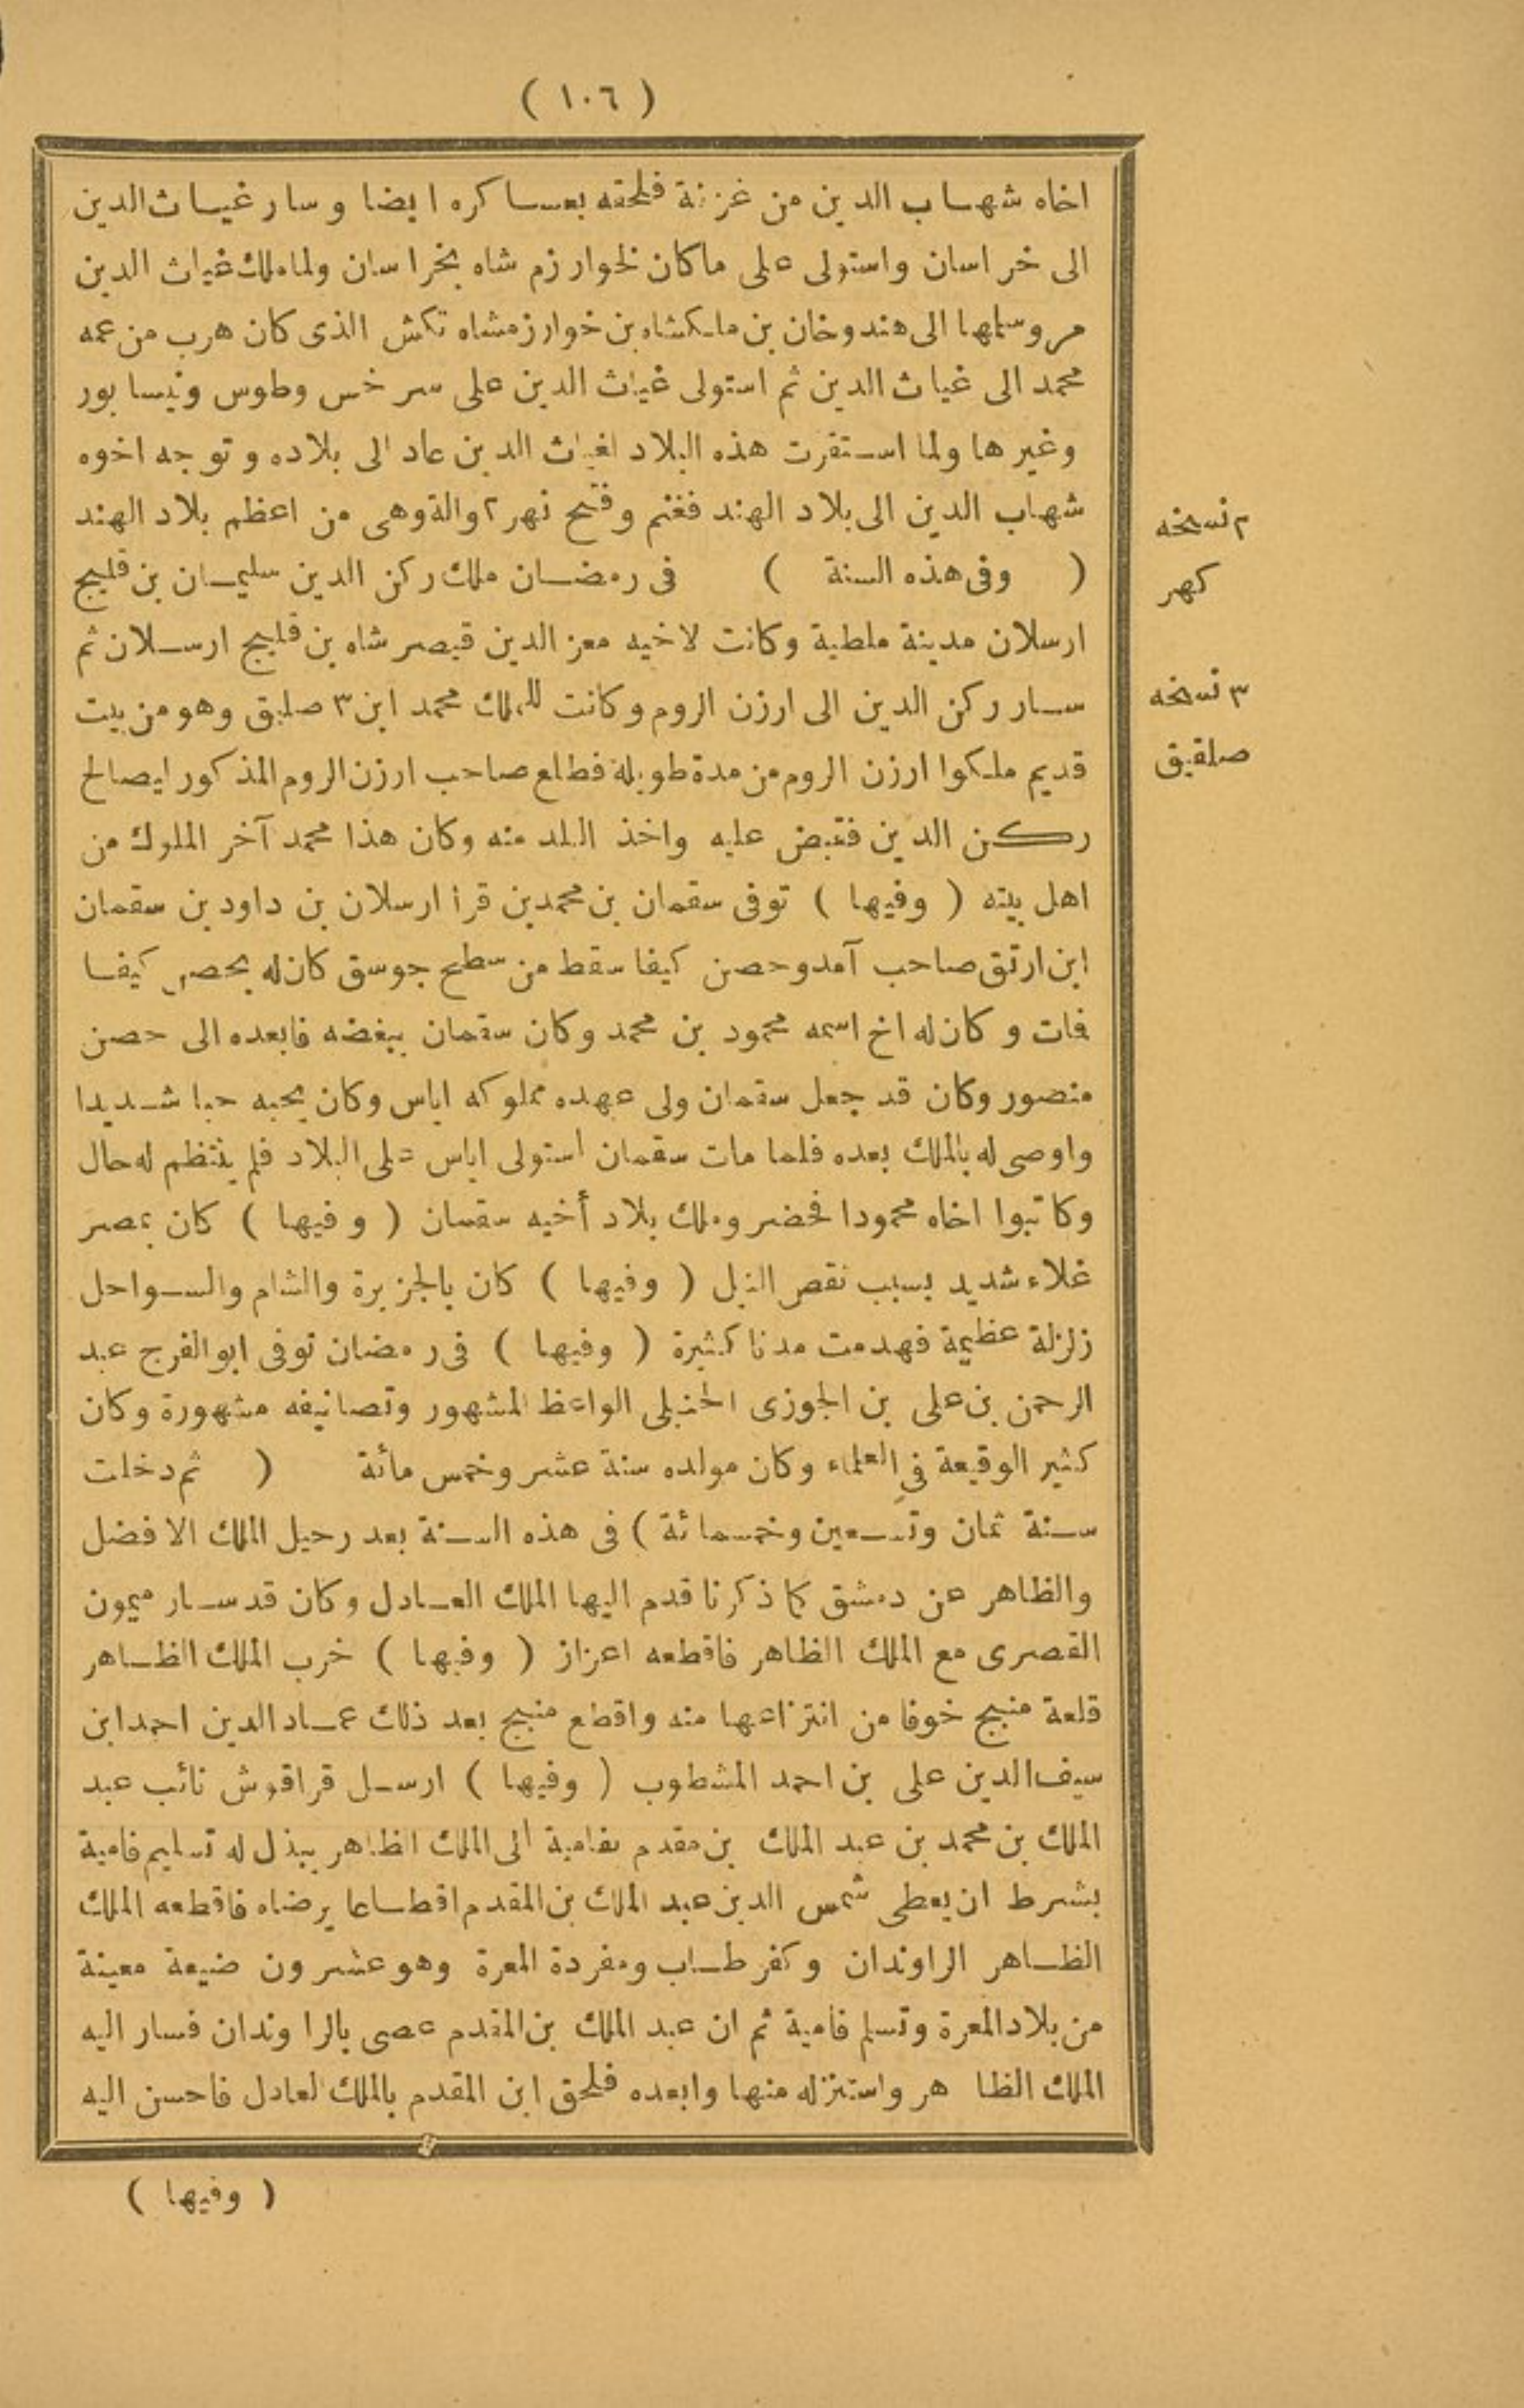 ( ١٠٦ )
اخاه شهاب الدين من غزنة فلحقه بعساكره ايضا وسار غياث الدين
الى خراسان واستولى على ماكان لخوارزم شاه بخراسان ولما ملك غياث الدين
مرو سلمها الى هندوخان بن ملكشاه بن خوارزمشاه تكش الذى كان هرب من عمه
محمد الى غياث الدين ثم استولى غياث الدين على سرخس وطوس ونيسابور
وغيرها ولما استقرت هذه البلاد لغياث الدين عاد الى بلاده وتوجه اخوه
شهاب الدين الى بلاد الهند فغنم وفتح نهر ٢ والة وهى من اعظم بلاد الهند
( وفى هذه السنة ) فى رمضان ملك ركن الدين سليمان بن قليج
ارسلان مدينة ملطية وكانت لاخيه معز الدين قيصر شاه بن قليج ارسلان ثم
سار ركن الدين الى ارزن الروم وكانت للملك محمد ابن ٣ صليق وهو من بيت
قديم ملكوا ارزن الروم من مدة طويلة فطلع صاحب ارزن الروم المذكور ليصالح
ركن الدين فقبض عليه واخذ البلد منه وكان هذا محمد آخر الملوك من
اهل بيته ( وفيها ) توفى سقمان بن محمد بن قرا ارسلان بن داود بن سقمان
ابن ارتق صاحب آمد وحصن كيفا سقط من سطح جوسق كان له بحصن كيفا
فمات وكان له اخ اسمه محمود بن محمد وكان سقمان يبغضه فابعده الى حصن
منصور وكان قد جعل سقمان ولى عهده مملوكه اياس وكان يحبه حبا شديدا
واوصى له بالملك بعده فلما مات سقمان استولى اياس على البلاد فلم ينتظم له حال
وكاتبوا اخاه محمودا فحضر وملك بلاد أخيه سقمان ( وفيها ) كان بمصر
غلاء شديد بسبب نقص النيل ( وفيها ) كان بالجزيرة والشام والسواحل
زلزلة عظيمة فهدمت مدنا كثيرة ( وفيها ) فى رمضان توفى ابو الفرج عبد
الرحمن بن على بن الجوزى الحنبلى الواعظ المشهور وتصانيفه مشهورة وكان
كثير الوقيعة في العلماء وكان مولده سنة عشر وخمس مائة ( ثم دخلت
سنة ثمان وتسعين وخمسمائة ) فى هذه السنة بعد رحيل الملك الافضل
والظاهر عن دمشق كما ذكرنا قدم اليها الملك العادل وكان قد سار ميمون
القصرى مع الملك الظاهر فاقطعه اعزاز ( وفيها ) خرب الملك الظاهر
قلعة منبج خوفا من انتزاعها منه واقطع منبج بعد ذلك عماد الدين احمد ابن
سيف الدين على بن احمد المشطوب ( وفيها ) ارسل قراقوش نائب عبد
الملك بن محمد بن عبد الملك بن مقدم بفامية الى الملك الظاهر يبذل له تسليم فامية
بشرط ان يعطى شمس الدين عبد الملك بن المقدم اقطاعا يرضاه فاقطعه الملك
الظاهر الراوندان وكفر طاب ومفردة المعرة وهو عشرون ضيعة معينة
من بلاد المعرة وتسلم فامية ثم ان عبد الملك بن المقدم عصى بالراوندان فسار اليه
الملك الظاهر واستنزله منها وابعده فلحق ابن المقدم بالملك العادل فاحسن اليه
( وفيها )
٢ نسخه
كهر
٣ نسخه
صلقيق